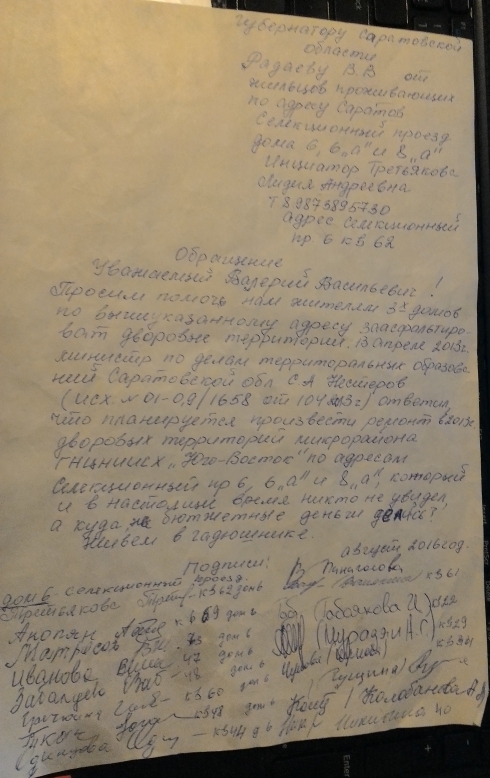 Губернатору Саратовской
области
Радаеву В.В от
жильцов проживающих
по адресу Саратов
Селекционный проезд
дома 6, 6„а" и 8„а"
Инициатор Третьякова
Лидия Андреевна
Т 89873895730
адрес Селекционный
пр. 6 кв 62
Обращение
Уважаемый Валерий Васильевич!
Просим помочь нам жителям 3х домов
по вышеуказанному адресу заасфальтиро-
вать дворовые территории. В апреле 2013г.
министр по делам территоральных образова-
ний Саратовской обл С А Нестеров
(исх. № 01-0,9/1658 от 104 13г) ответил,
что планируется произвести ремонт в 2013г.
дворовых территорий микрорайона
ГНЦНИИСХ „Юго-Восток" по адресам
Селекционный пр 6, 6„а" и 8„а", который
и в настоящие время никто не увидел,
а куда бютжетные деньги
Живем в гадюшнике.
август 2016 год.
Подписи:
дом 6 Селекционный проезд
Третьякова к 62 день
к 61
Анопян к 69 день
Матросов 73 день
Иванова 47 день
к 60 день
к 48 день
к 44
Табаякова И) к 22
к 29
к 34
Гущина
Колобанова А
Никитина 40